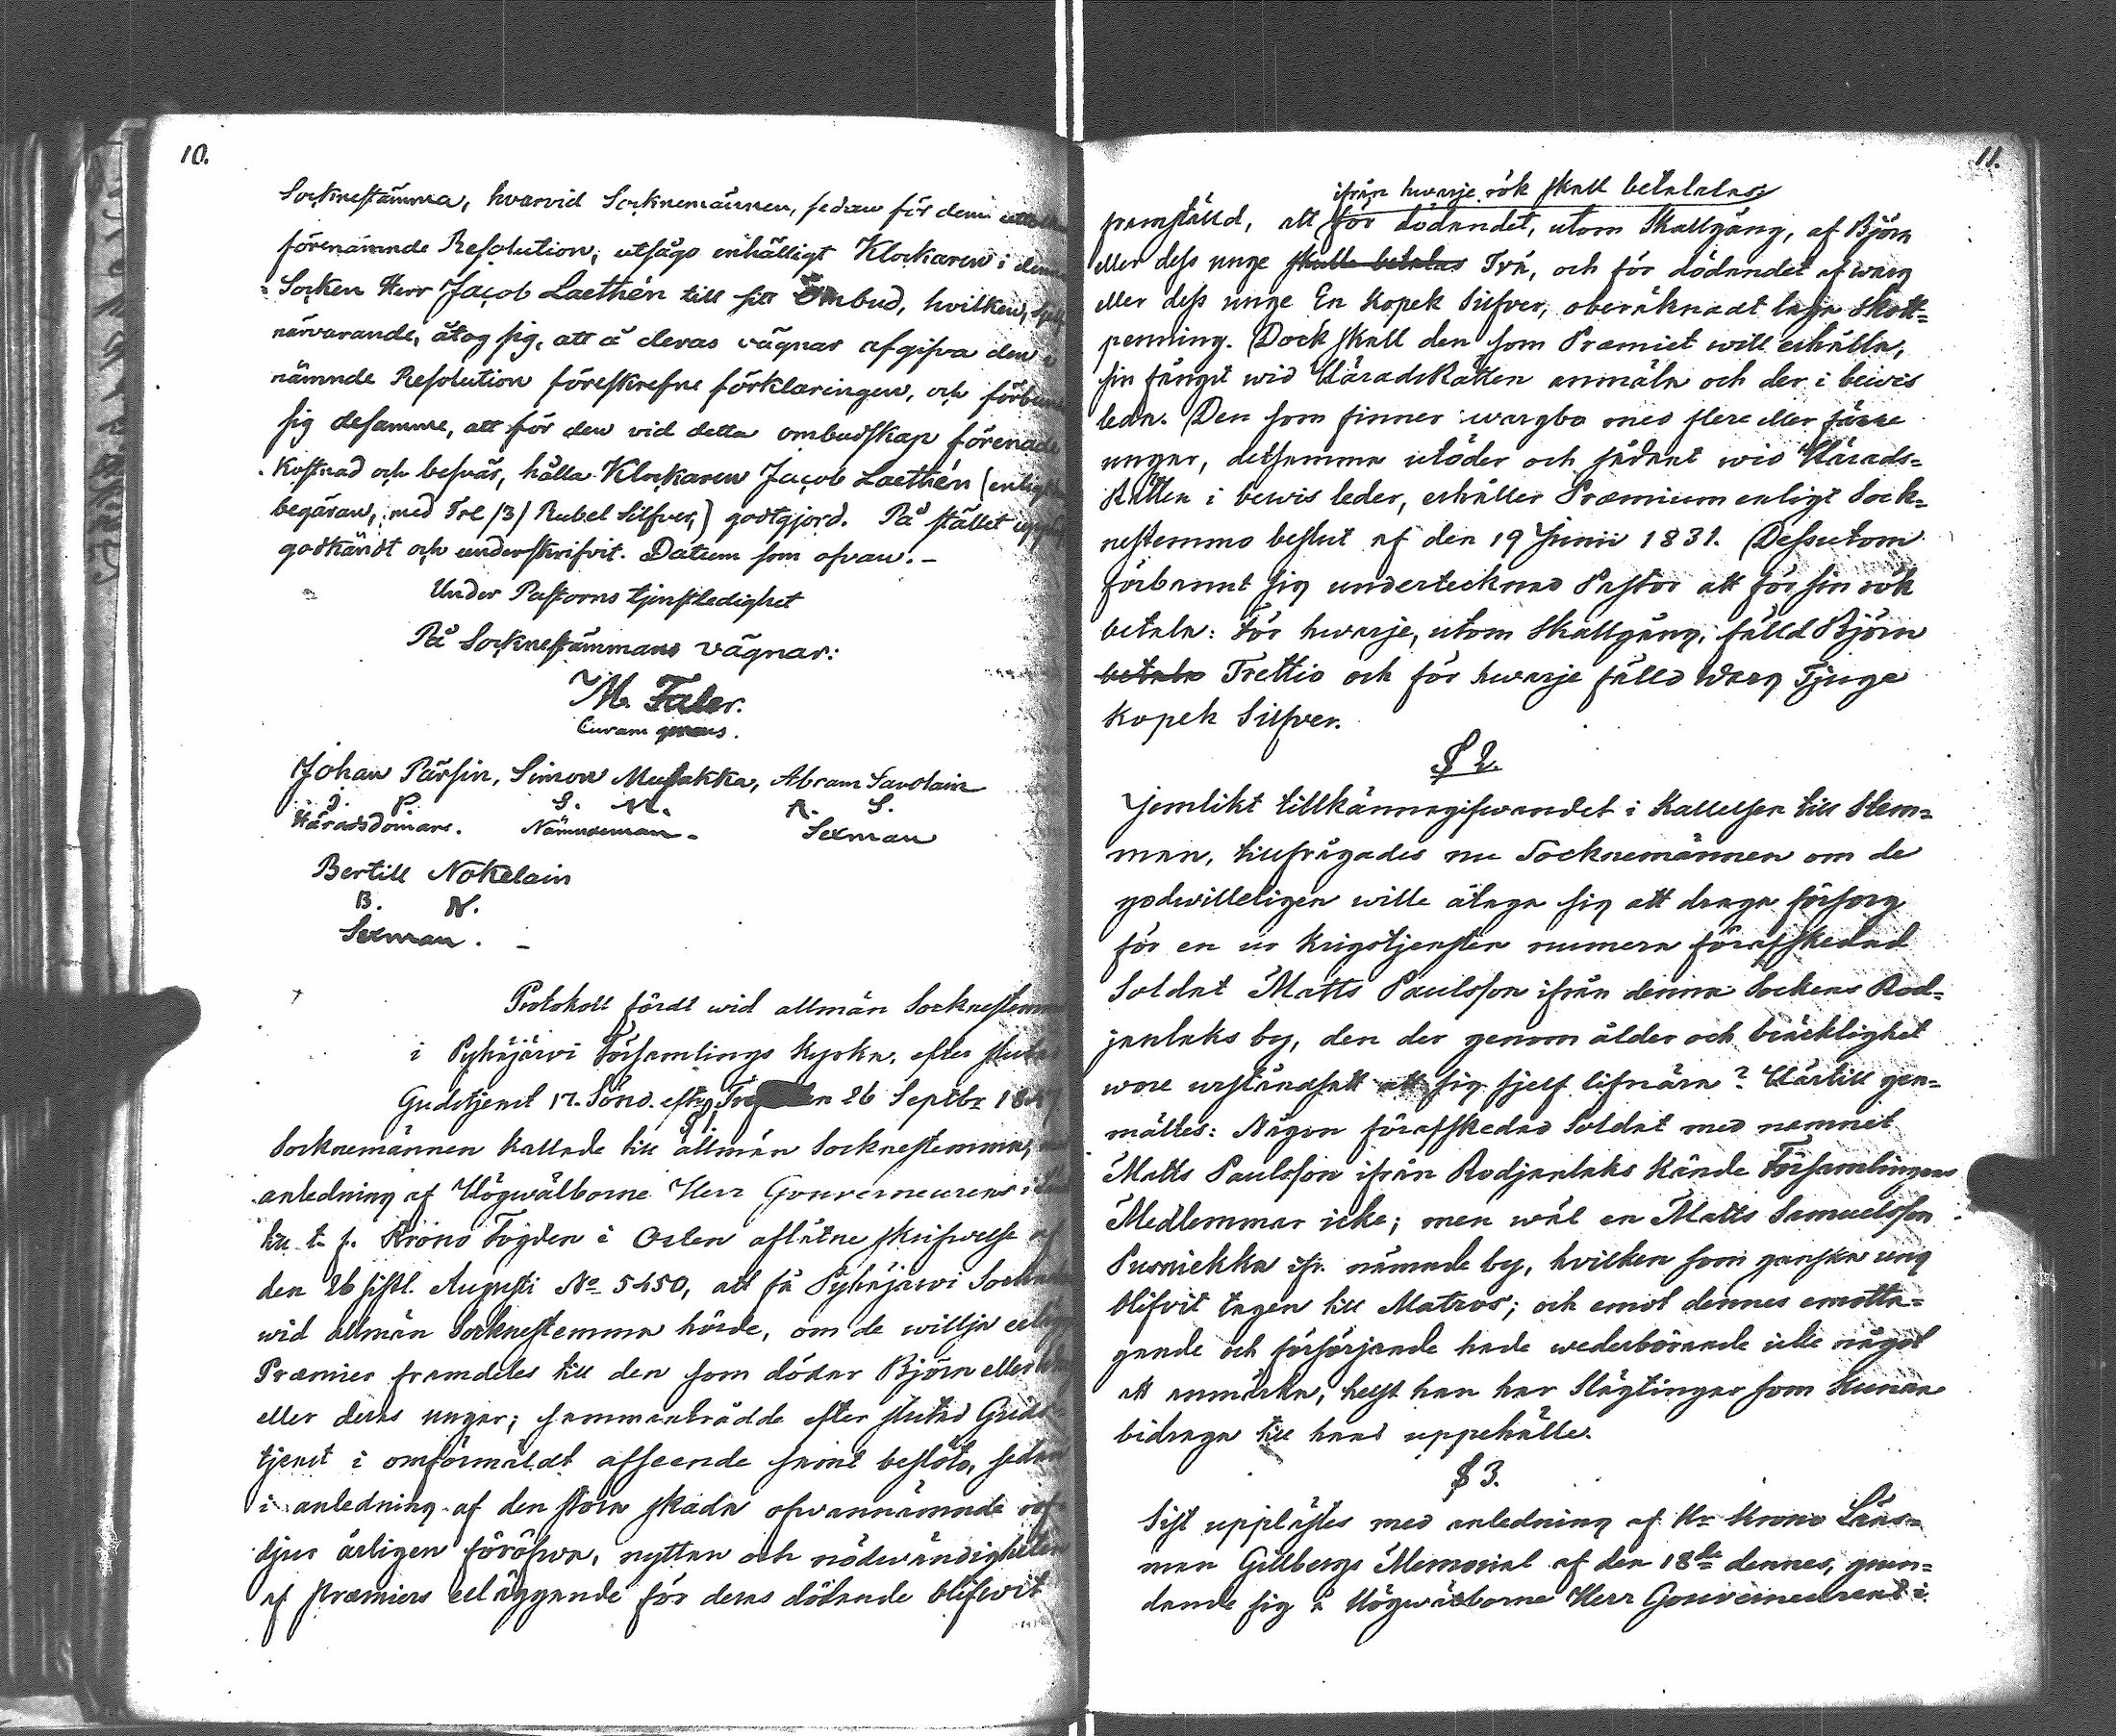 10.
Socknestämma, hvarvid Socknemännen, sedan för dem
förenämnde Resolution, utsågo enhälligt Klockaren i denna
Socken Herr Jacob Laethén till sitt Ombud, hvilken, sjelf
närvarande, åtog sig, att å deras vägnar afgifva den i
nämnde Resolution föreskrefne förklaringen, och förbundo
sig desamme, att för den vid detta ombudskap förenade
Kostnad och besvär, hålla Klockaren Jacob Laethén (enligt
begäran, med Tre /3/ Rubel Silfver,) godtgjord. På stället
godkändt och underskrifvit. Datum som ofvan. –
Under Pastorns tjenstledighet
På Socknestämmans vägnar:
M. Faler.
Curam gerens.
Johan Pärsin, Simon Musakka, Abram Savolain
J. P. S. M. A. S.
Häradsdomare. Nämndeman. Sexman
Bertill Nokelain
B. N.
Sexman. –
Protokoll fördt wid allmän Socknestemma
i Pyhäjärvi Församlings Kyrka, efter slutad
Gudstjenst 17. Sönd. eft. den 26 Septbr 18
§ 1.
Socknemännen kallade till allmän Socknestemma,
anledning af Högwälborne Herr Gouverneurens i
till t. f. Krono Fogden i Östen aflåtne skrifwelse af
den 26 sistl. Augusti No 5450, att få Pyhäjärwi Sockne
wid allmän Socknestemma hörde, om de willja erlägga
Præmier framdeles till den som dödar Björn eller
eller deras ungar; sammanträdde efter slutad Guds-
tjenst i omförmäldt afseende samt beslöto, sedan
i anledning af den stora skada ofwannämnde rof-
djur årligen föröfwa, nyttan och nödwändigheten
af præmiers erläggande för deras dödande blifwit
11.
ifrån hwarje rök skall betalas:
framställd, att för dödandet, utom Skallgång, af Björn
eller dess unge skulle betalas Två, och för dödandet af warg
eller dess unge En Kopek Silfver, oberäknadt laga Skott-
penning. Dock skall den som Præmiet will erhålla,
sin fångst wid HäradsRätten anmäla och der i bewis
leda. Den som finner wargbo med flere eller färre
ungar, detsamma utöder och sådant wid Härads-
Rätten i bewis leder, erhåller Præmium enligt Sock-
nestemmo beslut af den 19 Junii 1831. Dessutom
förbannt sig undertecknad Pastor att för sin rök
betala: För hwarje, utom Skallgång, fälld Björn
betala Trettio och för hwarje fälld Warg Tjuge
Kopek Silfver.
§ 2.
Jemlikt tillkännagifwandet i Kallelsen till Stem-
man, tillfrågades nu Socknemännen om de
godwilleligen wille åtaga sig att draga försorg
för en ur Krigstjensten numera förafskedad
Soldat Matts Paulsson ifrån denna Sockens Rad-
janlaks by, den der genom ålder och bräcklighet
wore urståndsatt att sig sjelf lifnära? Härtill gen-
mältes: Någon förafskedad Soldat med namnet
Matts Paulsson ifrån Radjanlaks kände Församlingens
Medlemmar icke; men wäl en Matts Samuelsson
Purniekka ifr. nämnde by, hvilken som ganska ung
blifvit tagen till Matros; och emot dennes emotta-
gande och försörjande hade wederbörande icke något
att anmärka, helst han har Slägtingar som kunna
bidraga till hans uppehälle.
§ 3.
Sist upplästes med anledning af Hr Krono Läns-
man Gillbergs Memorial af den 18de dennes, grun-
dande sig å Högwälborne Herr Gouverneurens i